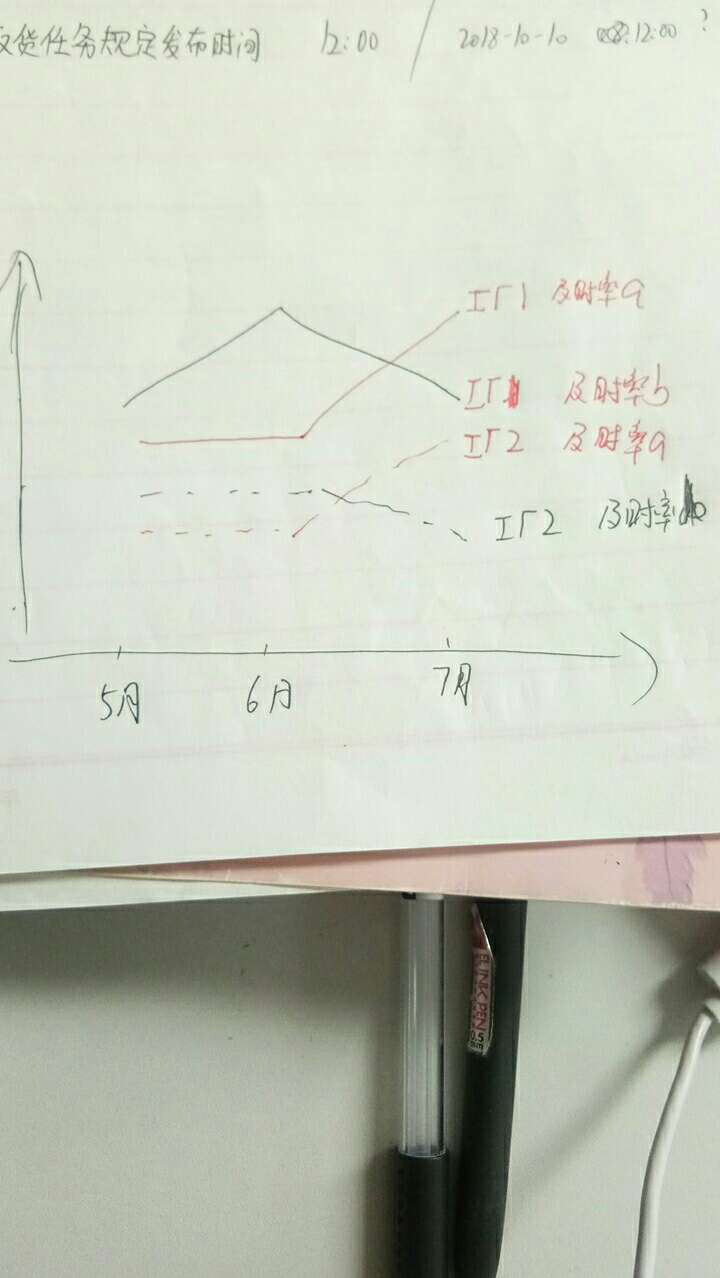 货任务规定发布时间 12:00 / 2018-10-10 12:00 ?
工厂1 及时率a
工厂1 及时率b
工厂2 及时率a
工厂2 及时率b
5月 6月 7月
INK PEN
0.5
mm